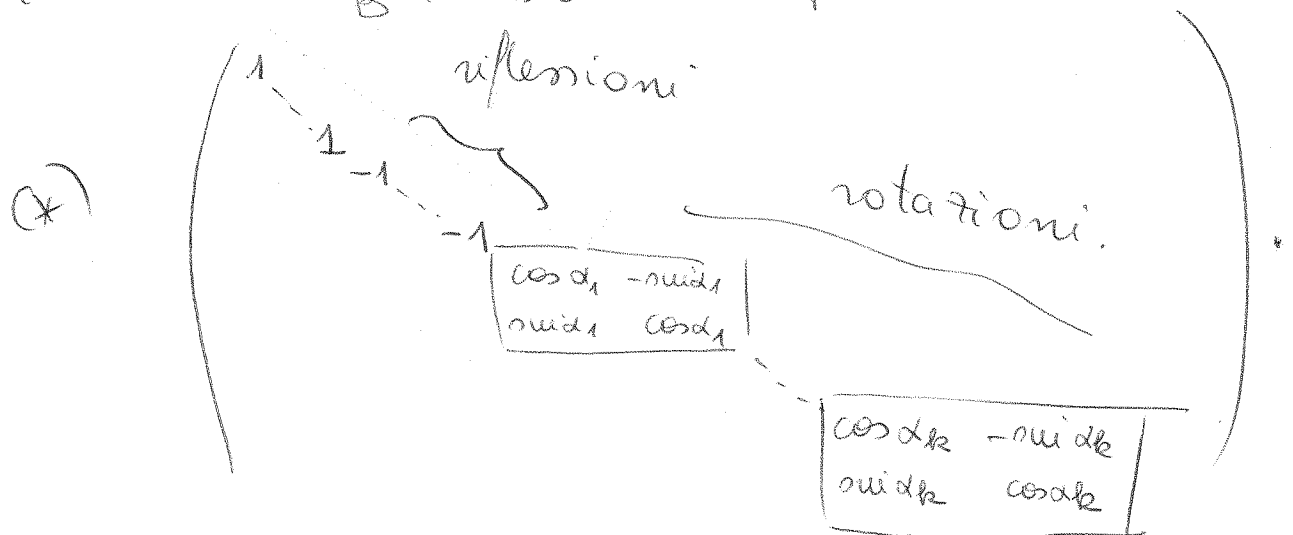 riflessioni
1
1
-1
(*)
rotazioni.
-1
cos α₁ -sin α₁
sin α₁ cos α₁
cos αₖ -sin αₖ
sin αₖ cos αₖ